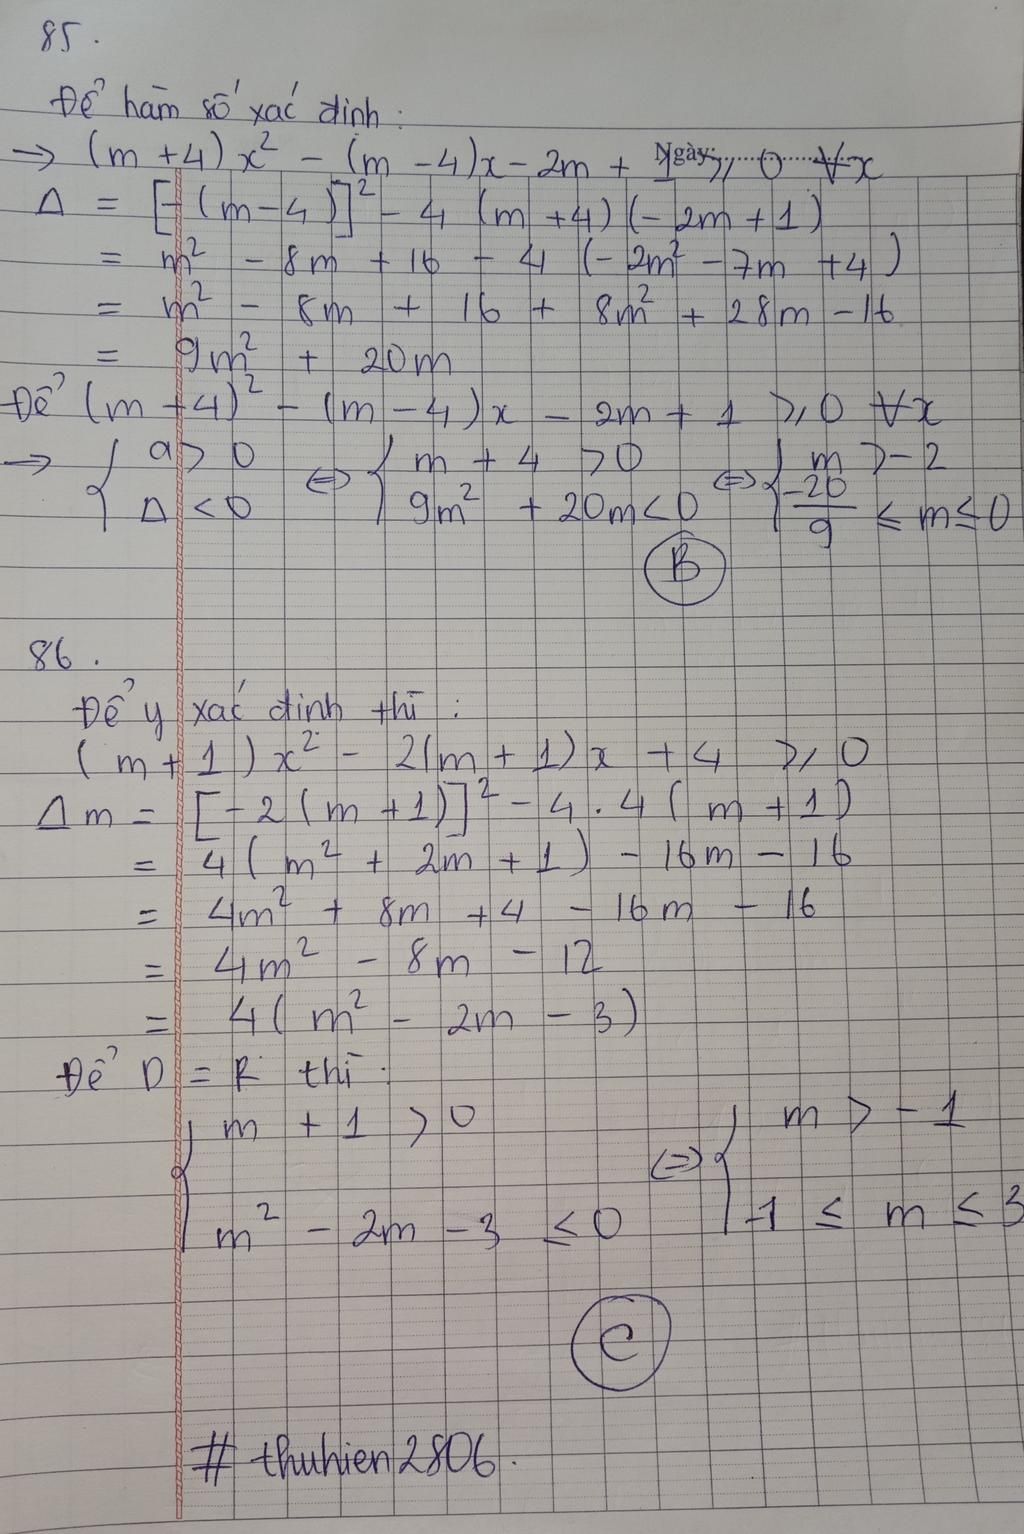 85.
Để hàm số xác định:
→ (m + 4) x² - (m - 4)x - 2m + 1 ≥ 0 ∀x
Ngày:
Δ = [-(m - 4)]² - 4 (m + 4)(-2m + 1)
= m² - 8m + 16 - 4 (-2m² - 7m + 4)
= m² - 8m + 16 + 8m² + 28m - 16
= 9m² + 20m
Để (m + 4)² - (m - 4)x - 2m + 1 ≥ 0 ∀x
→ { a > 0 ⇔ { m + 4 > 0 ⇔ { m > -2
Δ < 0 9m² + 20m < 0 -20/9 ≤ m ≤ 0
B
86.
Để y xác định thì:
(m + 1)x² - 2(m + 1)x + 4 ≥ 0
Δm = [-2(m + 1)]² - 4.4(m + 1)
= 4(m² + 2m + 1) - 16m - 16
= 4m² + 8m + 4 - 16m - 16
= 4m² - 8m - 12
= 4(m² - 2m - 3)
Để D = R thì:
{ m + 1 > 0 ⇔ { m > -1
m² - 2m - 3 ≤ 0 -1 ≤ m ≤ 3
C
# thuhien2806.